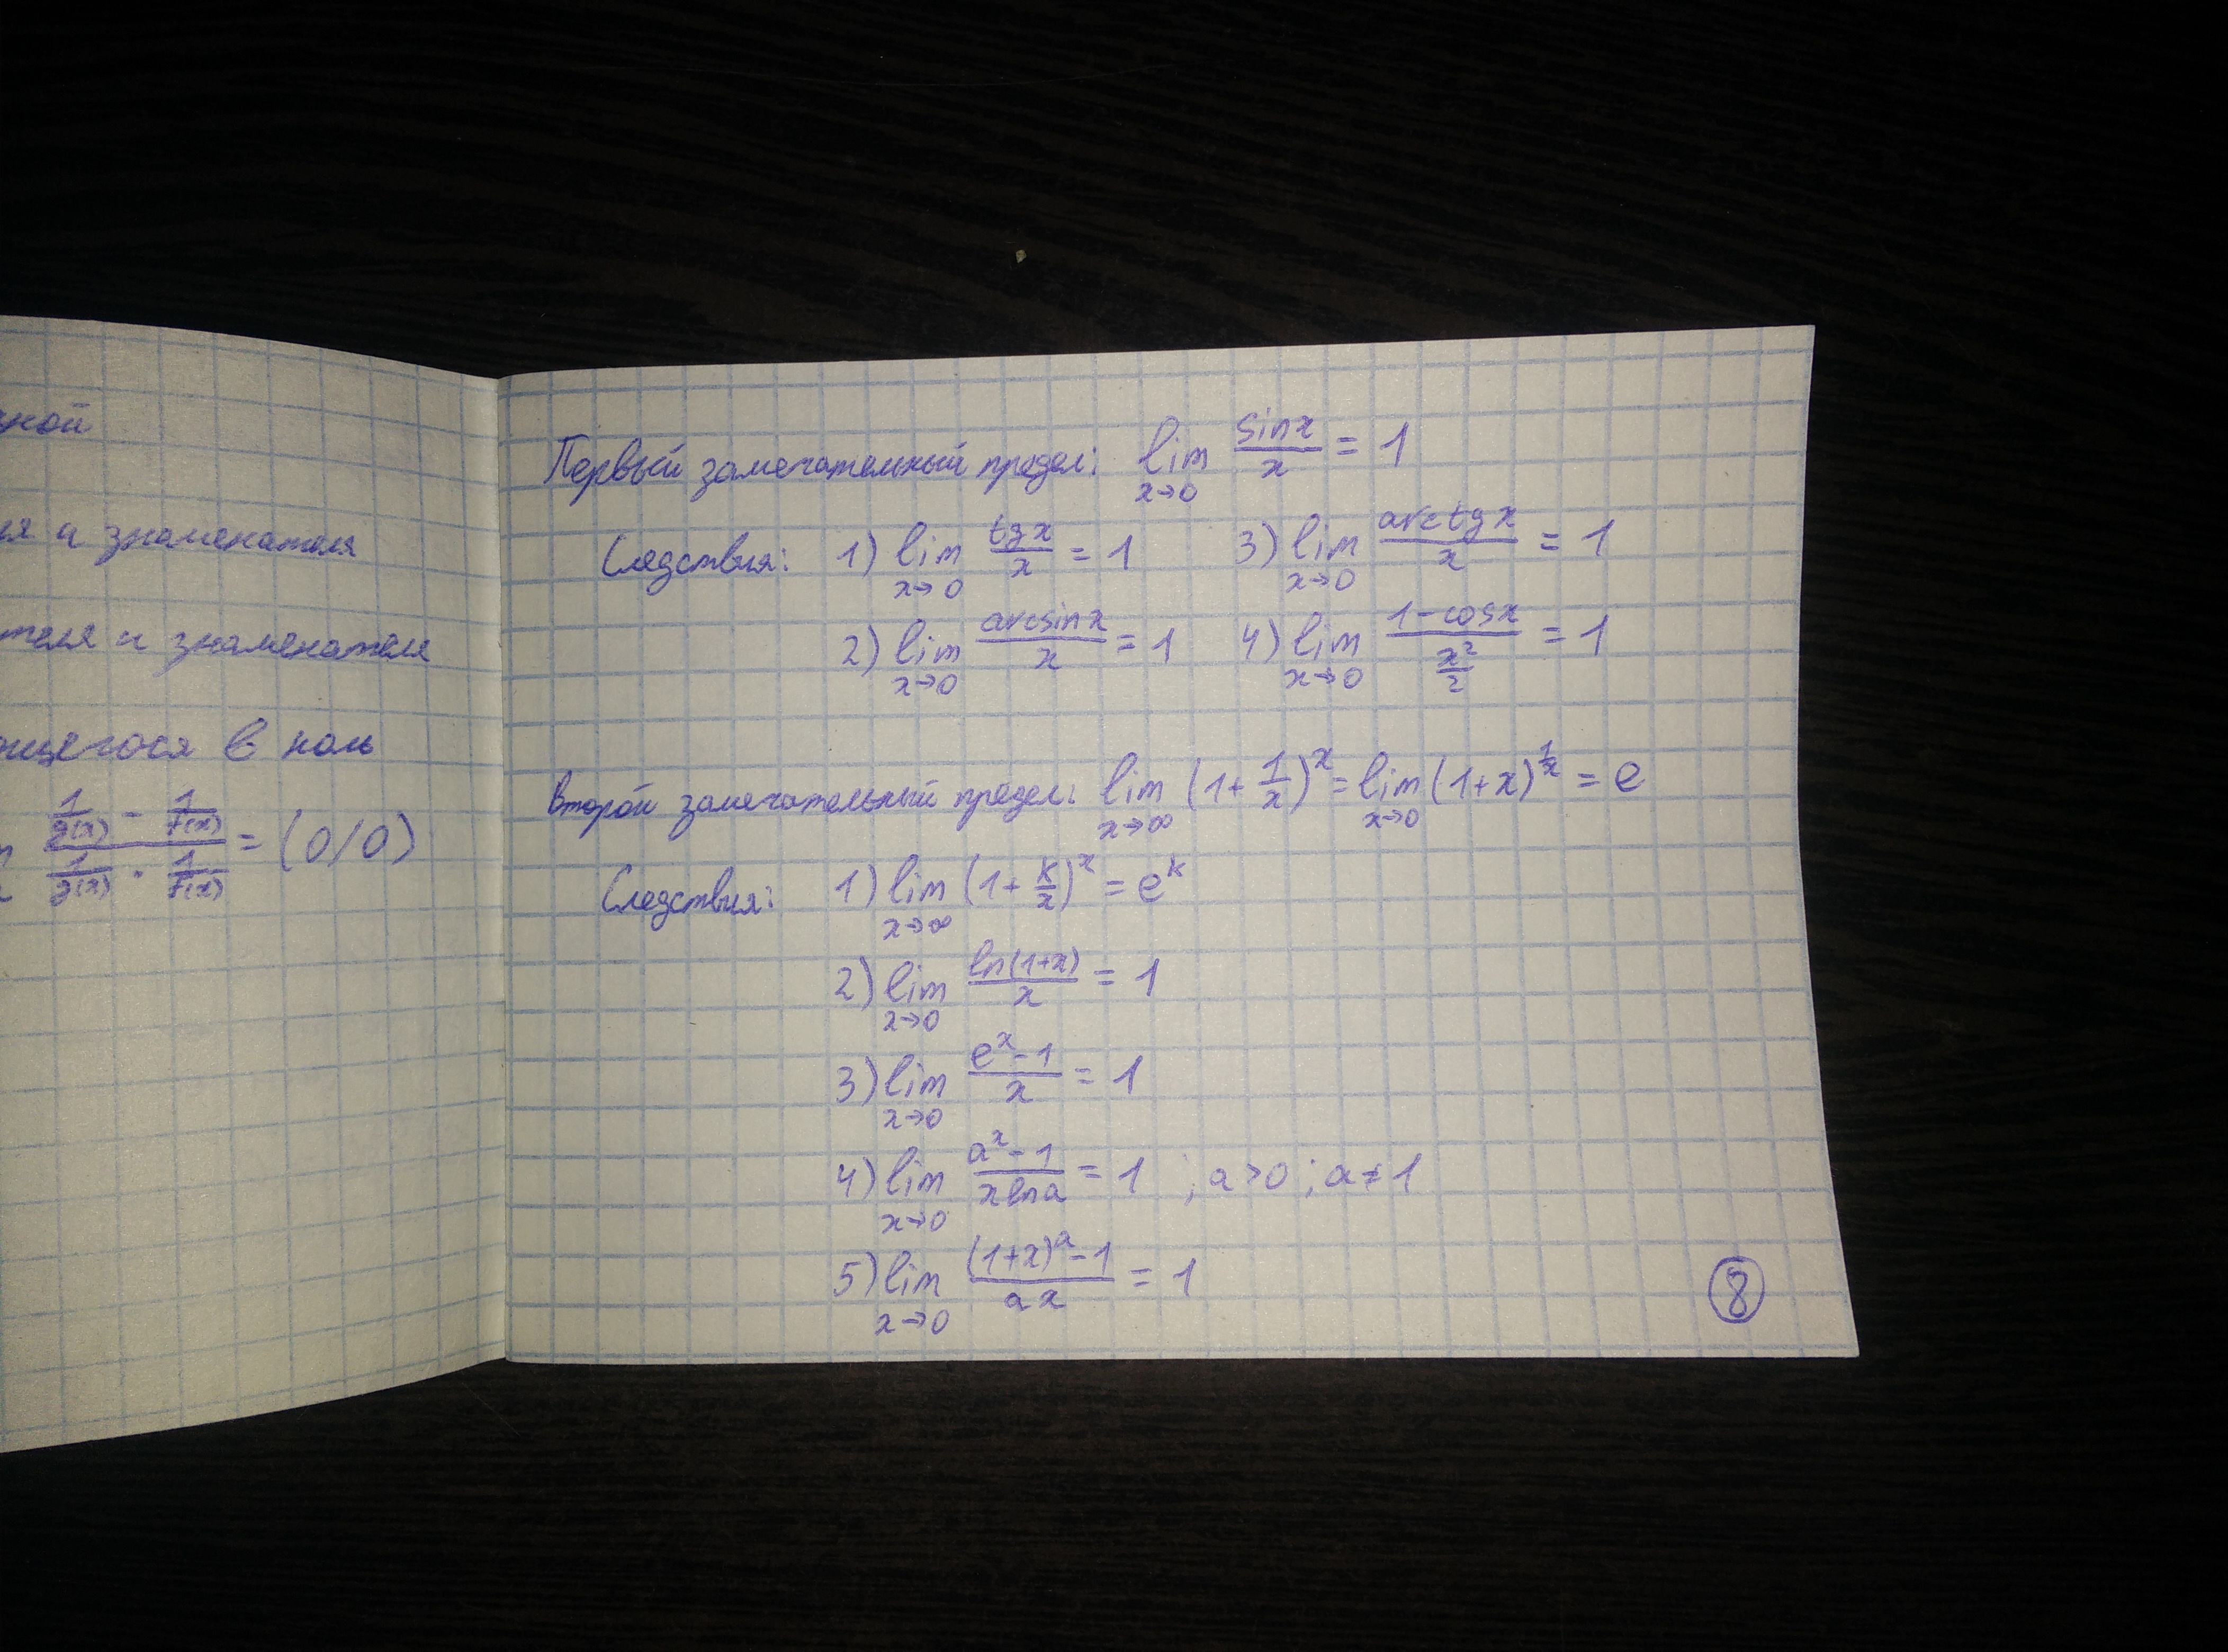 ной
ля и знаменателя
теля и знаменателя
ющегося в ноль
\frac{\frac{1}{g(x)} - \frac{1}{f(x)}}{\frac{1}{g(x)} \cdot \frac{1}{f(x)}} = (0/0)
Первый замечательный предел: lim_{x→0} \frac{sin x}{x} = 1
Следствия: 1) lim_{x→0} \frac{tg x}{x} = 1 3) lim_{x→0} \frac{arctg x}{x} = 1
2) lim_{x→0} \frac{arcsin x}{x} = 1 4) lim_{x→0} \frac{1-cos x}{\frac{x^2}{2}} = 1
Второй замечательный предел: lim_{x→∞} (1+\frac{1}{x})^x = lim_{x→0} (1+x)^{\frac{1}{x}} = e
Следствия: 1) lim_{x→∞} (1+\frac{k}{x})^x = e^k
2) lim_{x→0} \frac{ln(1+x)}{x} = 1
3) lim_{x→0} \frac{e^x-1}{x} = 1
4) lim_{x→0} \frac{a^x-1}{x ln a} = 1 ; a>0 ; a≠1
5) lim_{x→0} \frac{(1+x)^a-1}{ax} = 1
8